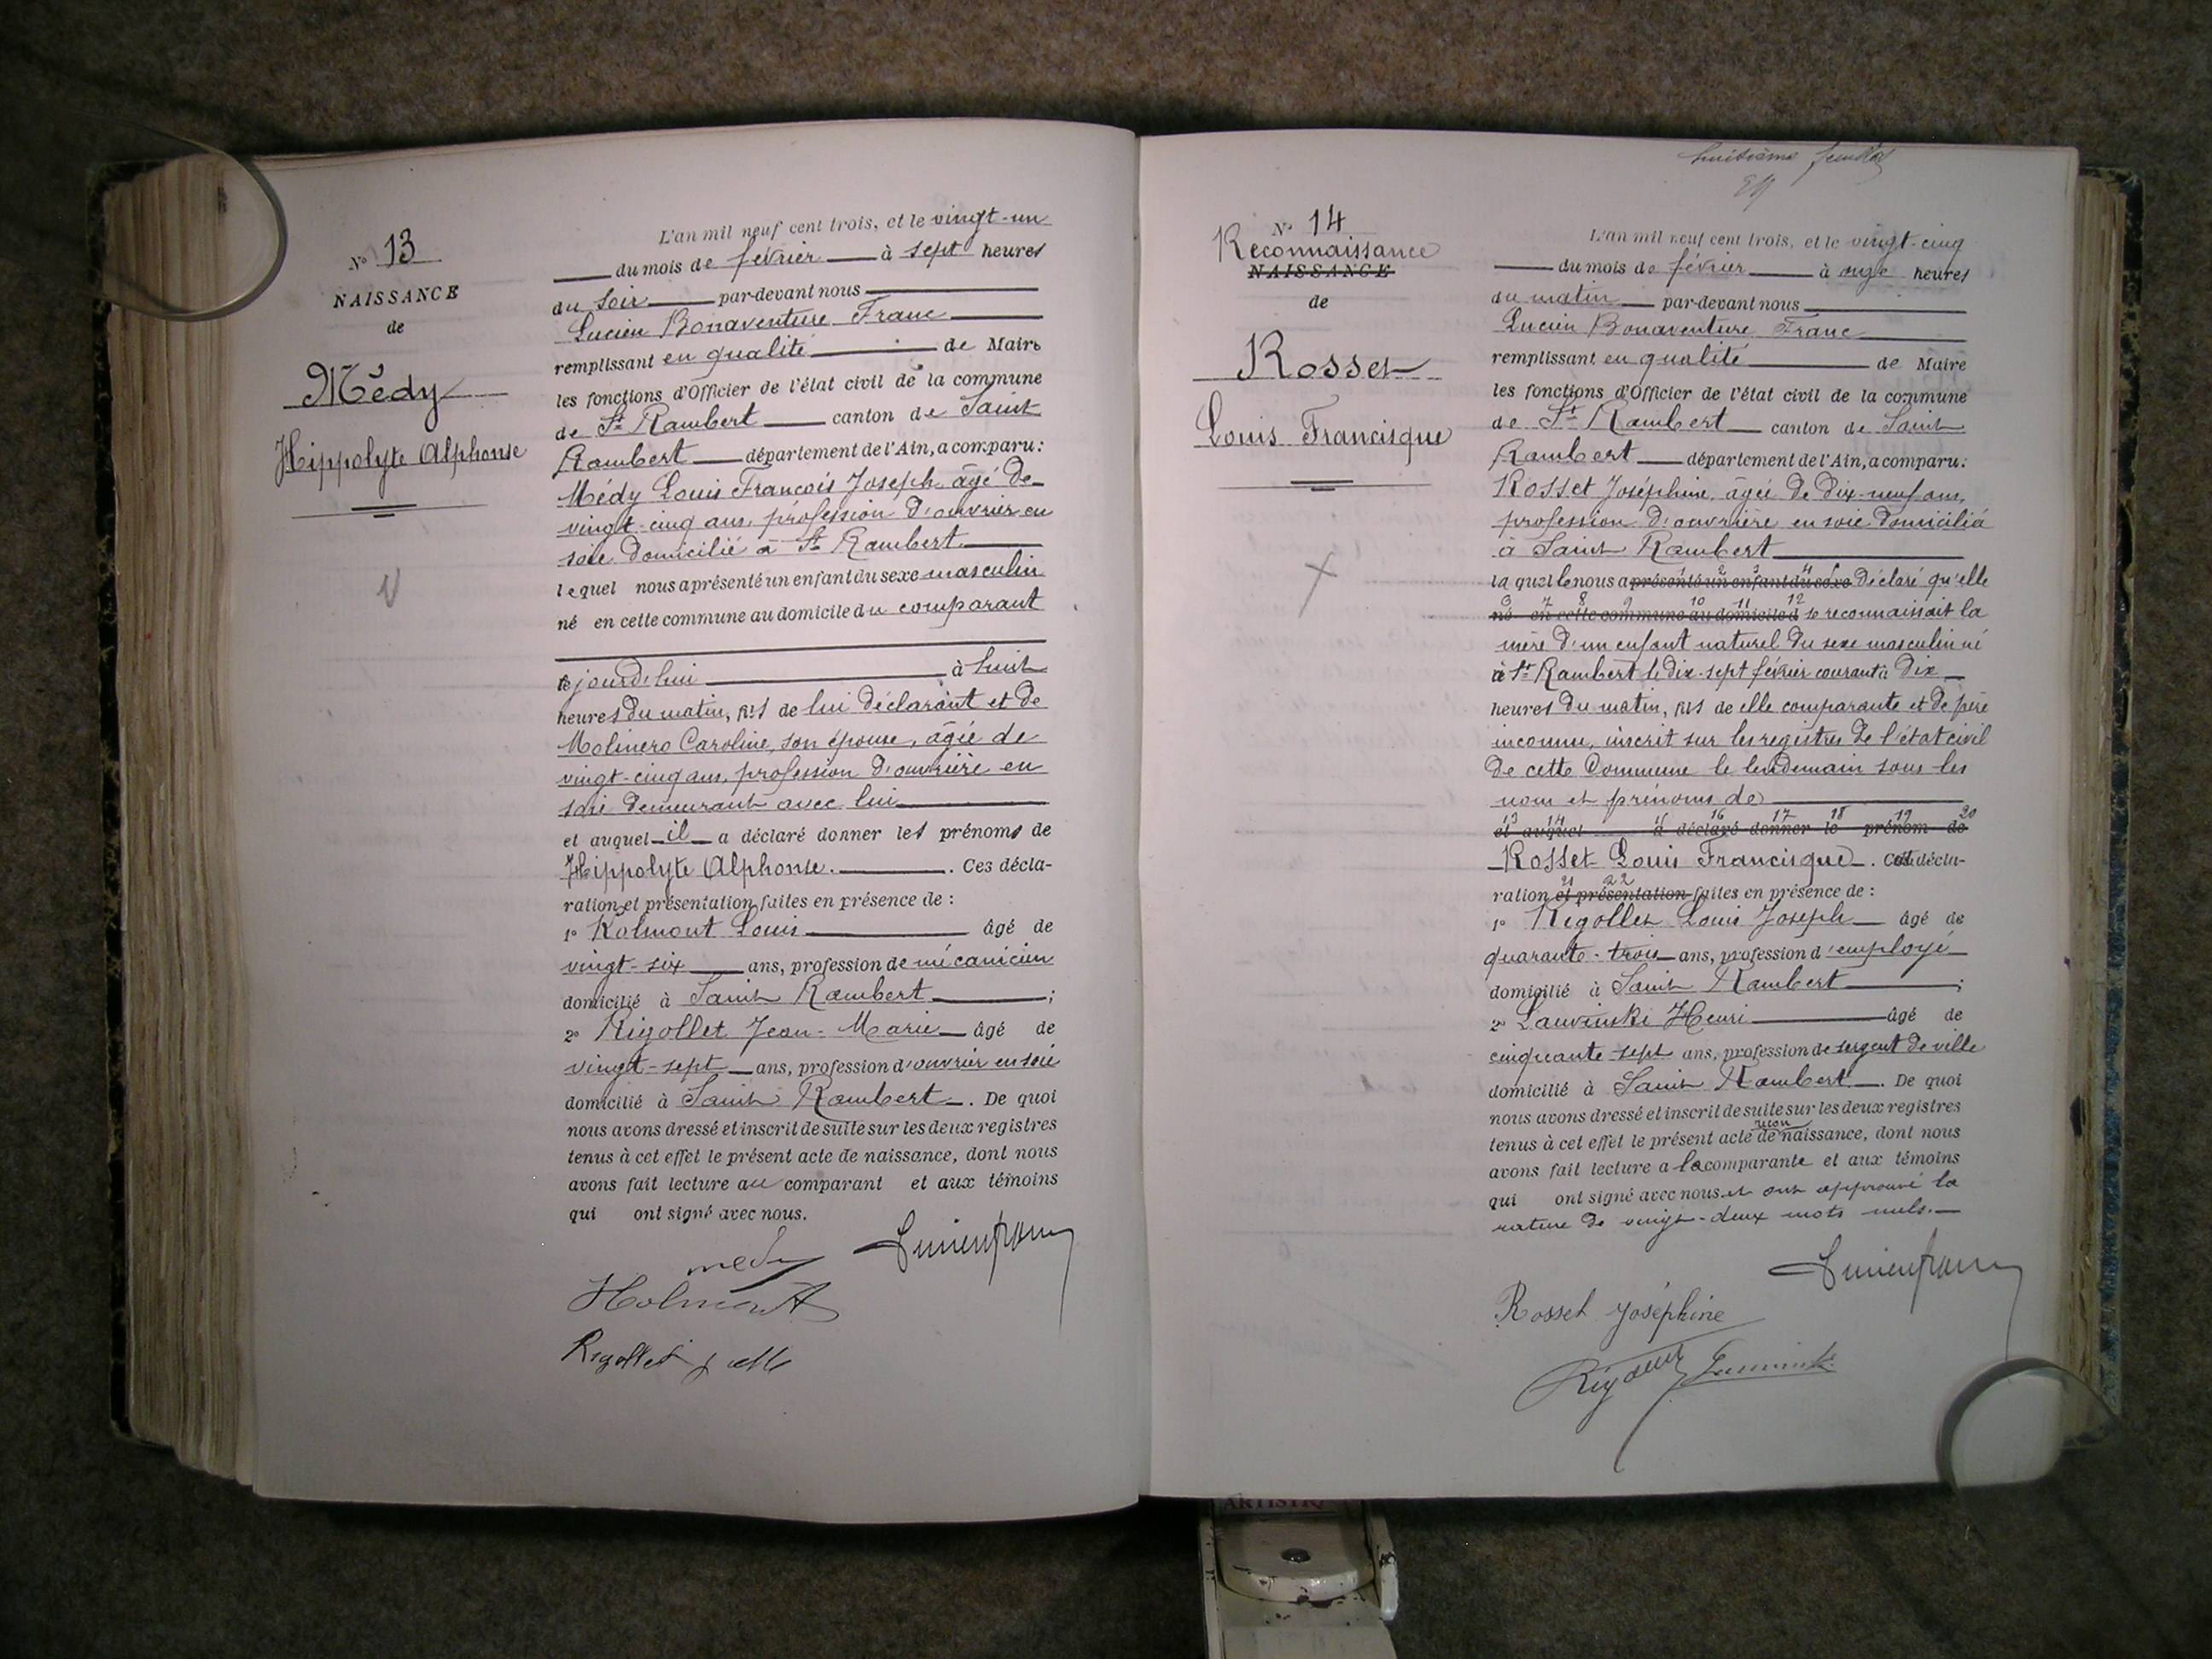 N° 13
NAISSANCE
de
Médy
Hippolyte Alphonse
L'an mil neuf cent trois, et le vingt-un
du mois de février à sept heures
du soir par-devant nous
Lucien Bonaventure Franc
remplissant en qualité de Maire
les fonctions d'Officier de l'état civil de la commune
de St Rambert canton de Saint
Rambert département de l'Ain, a comparu:
Médy Louis François Joseph, âgé de
vingt-cinq ans, profession d'ouvrier en
soie domicilié à St Rambert
lequel nous a présenté un enfant du sexe masculin
né en cette commune au domicile du comparant
le jourd'hui à huit
heures du matin, fils de lui déclarant et de
Molinero Caroline, son épouse, âgée de
vingt-cinq ans, profession d'ouvrière en
soie demeurant avec lui
et auquel il a déclaré donner les prénoms de
Hippolyte Alphonse. Ces décla-
ration et présentation faites en présence de :
1° Holmont Louis âgé de
vingt-six ans, profession de mécanicien
domicilié à Saint Rambert ;
2° Rigollet Jean-Marie âgé de
vingt-sept ans, profession d'ouvrier en soie
domicilié à Saint Rambert. De quoi
nous avons dressé et inscrit de suite sur les deux registres
tenus à cet effet le présent acte de naissance, dont nous
avons fait lecture au comparant et aux témoins
qui ont signé avec nous.
medy Lucien franc
Holmont
Rigollet J M
huitième feuillet
N° 14
Reconnaissance
NAISSANCE
de
Rosset
Louis Francisque
L'an mil neuf cent trois, et le vingt-cinq
du mois de février à onze heures
du matin par-devant nous
Lucien Bonaventure Franc
remplissant en qualité de Maire
les fonctions d'Officier de l'état civil de la commune
de St Rambert canton de Saint
Rambert département de l'Ain, a comparu:
Rosset Joséphine, âgée de dix-neuf ans,
profession d'ouvrière en soie domiciliée
à Saint Rambert
laquelle nous a présenté un enfant du sexe déclaré qu'elle
né en cette commune au domicile d se reconnaissait la
mère d'un enfant naturel du sexe masculin né
à St Rambert le dix-sept février courant à dix
heures du matin, fils de elle comparante et de père
inconnu, inscrit sur les registres de l'état civil
de cette Commune le lendemain sous les
nom et prénoms de
13 14 15 16 17 18 19 20
et auquel a déclaré donner le prénom de
Rosset Louis Francisque. Cette décla-
21 22
ration et présentation faites en présence de :
1° Rigollet Louis Joseph âgé de
quarante-trois ans, profession d'employé
domicilié à Saint Rambert ;
2° Lawinski Henri âgé de
cinquante-sept ans, profession de sergent de ville
domicilié à Saint Rambert. De quoi
nous avons dressé et inscrit de suite sur les deux registres
recon
tenus à cet effet le présent acte de naissance, dont nous
avons fait lecture a la comparante et aux témoins
qui ont signé avec nous et ont approuvé la
rature de vingt-deux mots nuls.
Lucien franc
Rosset Joséphine
ARTISTIQ